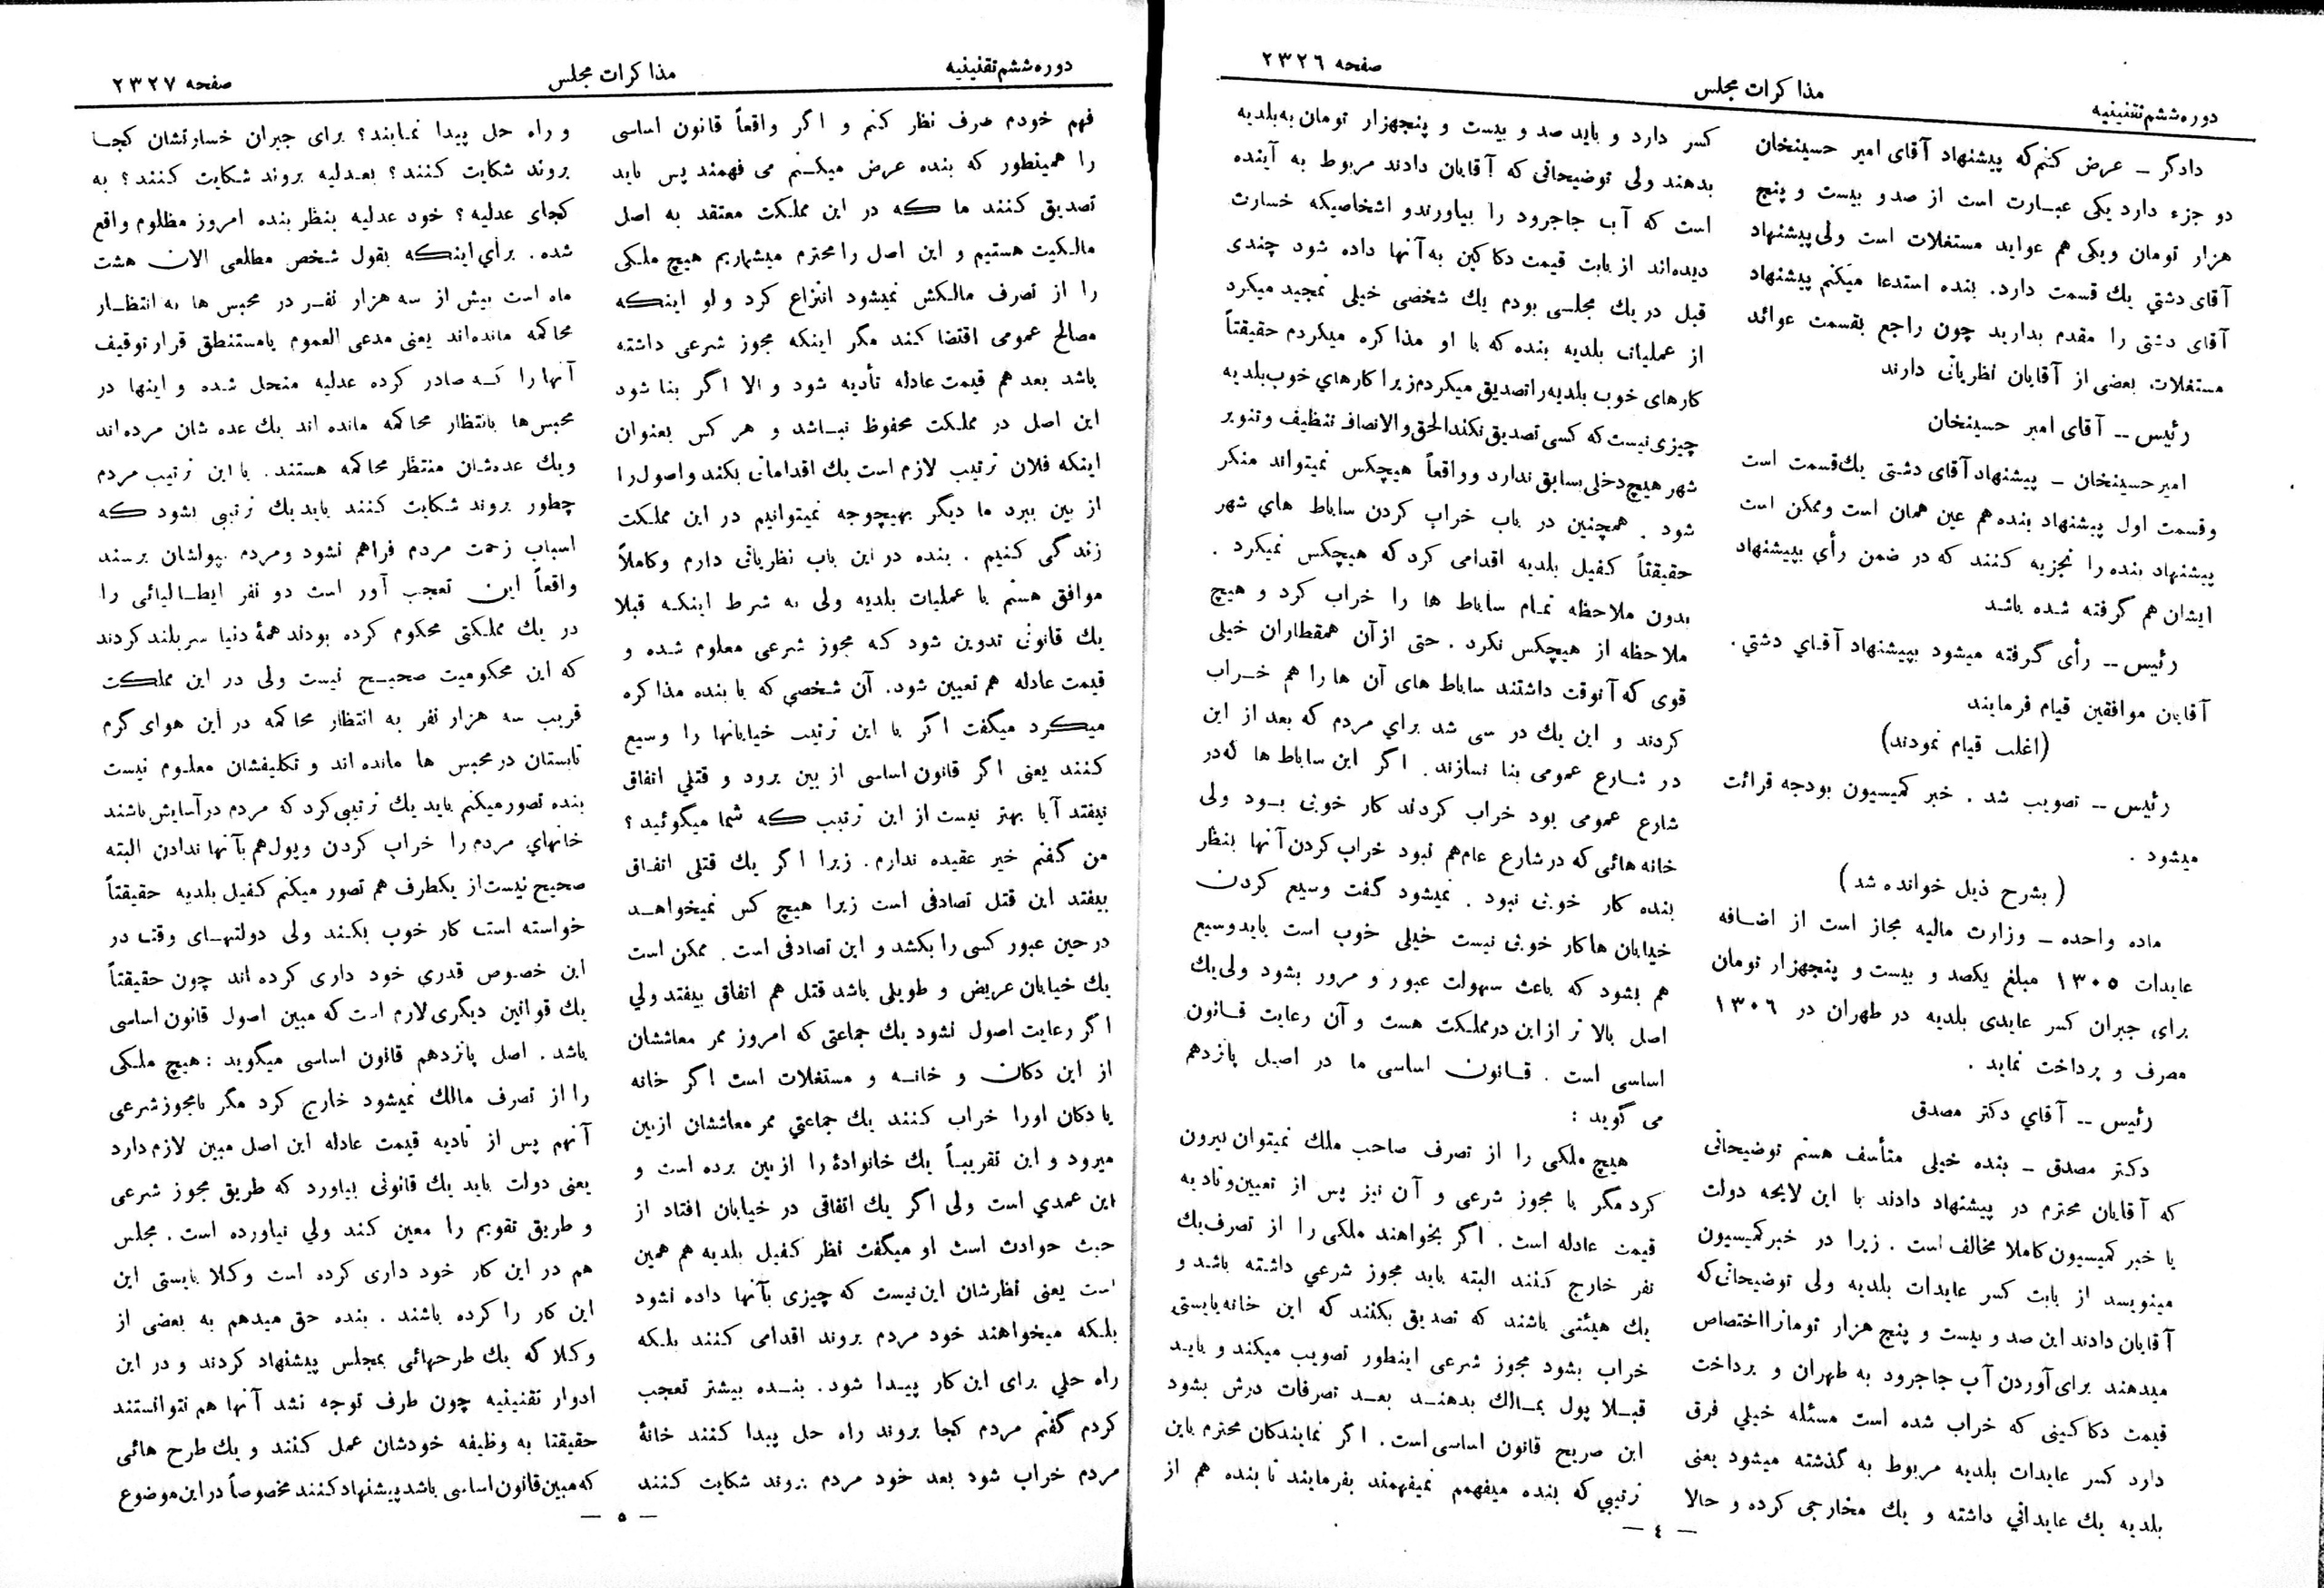 صفحه ٢٣٢٦
مذاکرات مجلس
دوره ششم تقنینیه
دادگر ــ عرض کنم که پیشنهاد آقای امیر حسینخان
دو جزء دارد یکی عبارت است از صد و بیست و پنج
هزار تومان و یکی هم عواید مستغلات است ولی پیشنهاد
آقای دشتی یك قسمت دارد. بنده استدعا میکنم پیشنهاد
آقای دشتی را مقدم بدارید چون راجع بقسمت عوائد
مستغلات بعضی از آقایان نظریاتی دارند
رئیس ــ آقای امیر حسینخان
امیر حسینخان ــ پیشنهاد آقای دشتی یك قسمت است
و قسمت اول پیشنهاد بنده هم عین همان است و ممکن است
پیشنهاد بنده را تجزیه کنند که در ضمن رأی بپیشنهاد
ایشان هم گرفته شده باشد
رئیس ــ رأی گرفته میشود بپیشنهاد آقای دشتی.
آقایان موافقین قیام فرمایند
(اغلب قیام نمودند)
رئیس ــ تصویب شد . خبر کمیسیون بودجه قرائت
میشود .
( بشرح ذیل خوانده شد )
ماده واحده ــ وزارت مالیه مجاز است از اضافه
عایدات ١٣٠٥ مبلغ یکصد و بیست و پنجهزار تومان
برای جبران کسر عایدی بلدیه در طهران در ١٣٠٦
مصرف و پرداخت نماید .
رئیس ــ آقای دکتر مصدق
دکتر مصدق ــ بنده خیلی متأسف هستم توضیحاتی
که آقایان محترم در پیشنهاد دادند با این لایحه دولت
با خبر کمیسیون کاملا مخالف است . زیرا در خبر کمیسیون
مینویسد از بابت کسر عایدات بلدیه ولی توضیحاتی که
آقایان دادند این صد و بیست و پنج هزار تومانرا اختصاص
میدهند برای آوردن آب جاجرود به طهران و پرداخت
قیمت دکاکینی که خراب شده است مسئله خیلی فرق
دارد کسر عایدات بلدیه مربوط به گذشته میشود یعنی
بلدیه یك عایداتی داشته و یك مخارجی کرده و حالا
کسر دارد و باید صد و بیست و پنجهزار تومان به بلدیه
بدهند ولی توضیحاتی که آقایان دادند مربوط به آینده
است که آب جاجرود را بیاورند و اشخاصیکه خسارت
دیده‌اند از بابت قیمت دکاکین به آنها داده شود چندی
قبل در یك مجلسی بودم یك شخصی خیلی تمجید میکرد
از عملیات بلدیه بنده که با او مذاکره میکردم حقیقتاً
کارهای خوب بلدیه را تصدیق میکردم زیرا کارهای خوب بلدیه
چیزی نیست که کسی تصدیق نکند الحق و الانصاف تنظیف و تنویر
شهر هیچ دخلی بسابق ندارد و واقعاً هیچکس نمیتواند منکر
شود . همچنین در باب خراب کردن ساباط های شهر
حقیقتاً کفیل بلدیه اقدامی کرد که هیچکس نمیکرد .
بدون ملاحظه تمام ساباط ها را خراب کرد و هیچ
ملاحظه از هیچکس نکرد . حتی از آن همقطاران خیلی
قوی که آنوقت داشتند ساباط های آن ها را هم خراب
کردند و این یك درسی شد برای مردم که بعد از این
در شارع عمومی بنا نسازند. اگر این ساباط ها که در
شارع عمومی بود خراب کردند کار خوبی بود ولی
خانه هائی که در شارع عام هم نبود خراب کردن آنها بنظر
بنده کار خوبی نبود . نمیشود گفت وسیع کردن
خیابان ها کار خوبی نیست خیلی خوب است باید وسیع
هم بشود که باعث سهولت عبور و مرور بشود ولی یك
اصل بالاتر از این در مملکت هست و آن رعایت قانون
اساسی است . قانون اساسی ما در اصل پانزدهم
می گوید :
هیچ ملکی را از تصرف صاحب ملك نمیتوان بیرون
کرد مگر با مجوز شرعی و آن نیز پس از تعیین و تادیه
قیمت عادله است . اگر بخواهند ملکی را از تصرف یك
نفر خارج کنند البته باید مجوز شرعی داشته باشد و
یك هیئتی باشند که تصدیق بکنند که این خانه بایستی
خراب بشود مجوز شرعی اینطور تصویب میکند و باید
قبلا پول بمالك بدهند بعد تصرفات درش بشود
این صریح قانون اساسی است. اگر نمایندگان محترم باین
ترتیبی که بنده میفهمم نمیفهمند بفرمایند تا بنده هم از
— ٤ —
دوره ششم تقنینیه
مذاکرات مجلس
صفحه ٢٣٢٧
فهم خودم صرف نظر کنم و اگر واقعاً قانون اساسی
را همینطور که بنده عرض میکنم می فهمند پس باید
تصدیق کنند ما که در این مملکت معتقد به اصل
مالکیت هستیم و این اصل را محترم میشماریم هیچ ملکی
را از تصرف مالکش نمیشود انتزاع کرد و لو اینکه
مصالح عمومی اقتضا کند مگر اینکه مجوز شرعی داشته
باشد بعد هم قیمت عادله تأدیه شود و الا اگر بنا شود
این اصل در مملکت محفوظ نباشد و هر کس بعنوان
اینکه فلان ترتیب لازم است یك اقداماتی بکند و اصول را
از بین ببرد ما دیگر بهیچوجه نمیتوانیم در این مملکت
زندگی کنیم . بنده در این باب نظریاتی دارم و کاملاً
موافق هستم با عملیات بلدیه ولی به شرط اینکه قبلا
یك قانونی تدوین شود که مجوز شرعی معلوم شده و
قیمت عادله هم تعیین شود. آن شخصی که با بنده مذاکره
میکرد میگفت اگر با این ترتیب خیابانها را وسیع
کنند یعنی اگر قانون اساسی از بین برود و قتلی اتفاق
نیفتد آیا بهتر نیست از این ترتیب که شما میگوئید ؟
من گفتم خیر عقیده ندارم. زیرا اگر یك قتلی اتفاق
بیفتد این قتل تصادفی است زیرا هیچ کس نمیخواهد
در حین عبور کسی را بکشد و این تصادفی است . ممکن است
یك خیابان عریض و طویلی باشد قتل هم اتفاق بیفتد ولی
اگر رعایت اصول نشود یك جماعتی که امروز ممر معاششان
از این دکان و خانه و مستغلات است اگر خانه
یا دکان او را خراب کنند یك جماعتی ممر معاششان از بین
میرود و این تقریباً یك خانوادۀ را از بین برده است و
این عمدی است ولی اگر یك اتفاقی در خیابان افتاد از
حیث حوادث است او میگفت نظر کفیل بلدیه هم همین
است یعنی نظرشان این نیست که چیزی بآنها داده نشود
بلکه میخواهند خود مردم بروند اقدامی کنند بلکه
راه حلی برای این کار پیدا شود. بنده بیشتر تعجب
کردم گفتم مردم کجا بروند راه حل پیدا کنند خانۀ
مردم خراب شود بعد خود مردم بروند شکایت کنند
و راه حل پیدا نمایند؟ برای جبران خسارتشان کجا
بروند شکایت کنند؟ بعدلیه بروند شکایت کنند؟ به
کجای عدلیه؟ خود عدلیه بنظر بنده امروز مظلوم واقع
شده. برای اینکه بقول شخص مطلعی الان هشت
ماه است بیش از سه هزار نفر در محبس ها به انتظار
محاکمه مانده‌اند یعنی مدعی العموم یا مستنطق قرار توقیف
آنها را که صادر کرده عدلیه منحل شده و اینها در
محبس‌ها بانتظار محاکمه مانده اند یك عده شان مرده‌اند
و یك عده‌شان منتظر محاکمه هستند. با این ترتیب مردم
چطور بروند شکایت کنند باید یك ترتیبی بشود که
اسباب زحمت مردم فراهم نشود و مردم بپولشان برسند
واقعاً این تعجب آور است دو نفر ایطالیائی را
در یك مملکتی محکوم کرده بودند همۀ دنیا سر بلند کردند
که این محکومیت صحیح نیست ولی در این مملکت
قریب سه هزار نفر به انتظار محاکمه در این هوای گرم
تابستان در محبس ها مانده اند و تکلیفشان معلوم نیست
بنده تصور میکنم باید یك ترتیبی کرد که مردم در آسایش باشند
خانهای مردم را خراب کردن و پول هم بآنها ندادن البته
صحیح نیست از یکطرف هم تصور میکنم کفیل بلدیه حقیقتاً
خواسته است کار خوب بکند ولی دولتهای وقت در
این خصوص قدری خود داری کرده اند چون حقیقتاً
یك قوانین دیگری لازم است که مبین اصول قانون اساسی
باشد. اصل پانزدهم قانون اساسی میگوید : هیچ ملکی
را از تصرف مالك نمیشود خارج کرد مگر بامجوز شرعی
آنهم پس از تادیه قیمت عادله این اصل مبین لازم دارد
یعنی دولت باید یك قانونی بیاورد که طریق مجوز شرعی
و طریق تقویم را معین کند ولی نیاورده است. مجلس
هم در این کار خود داری کرده است وکلا بایستی این
این کار را کرده باشند . بنده حق میدهم به بعضی از
وکلا که یك طرحهائی بمجلس پیشنهاد کردند و در این
ادوار تقنینیه چون طرف توجه نشد آنها هم نتوانستند
حقیقتا به وظیفه خودشان عمل کنند و یك طرح هائی
که مبین قانون اساسی باشد پیشنهاد کنند مخصوصاً در این موضوع
— ٥ —